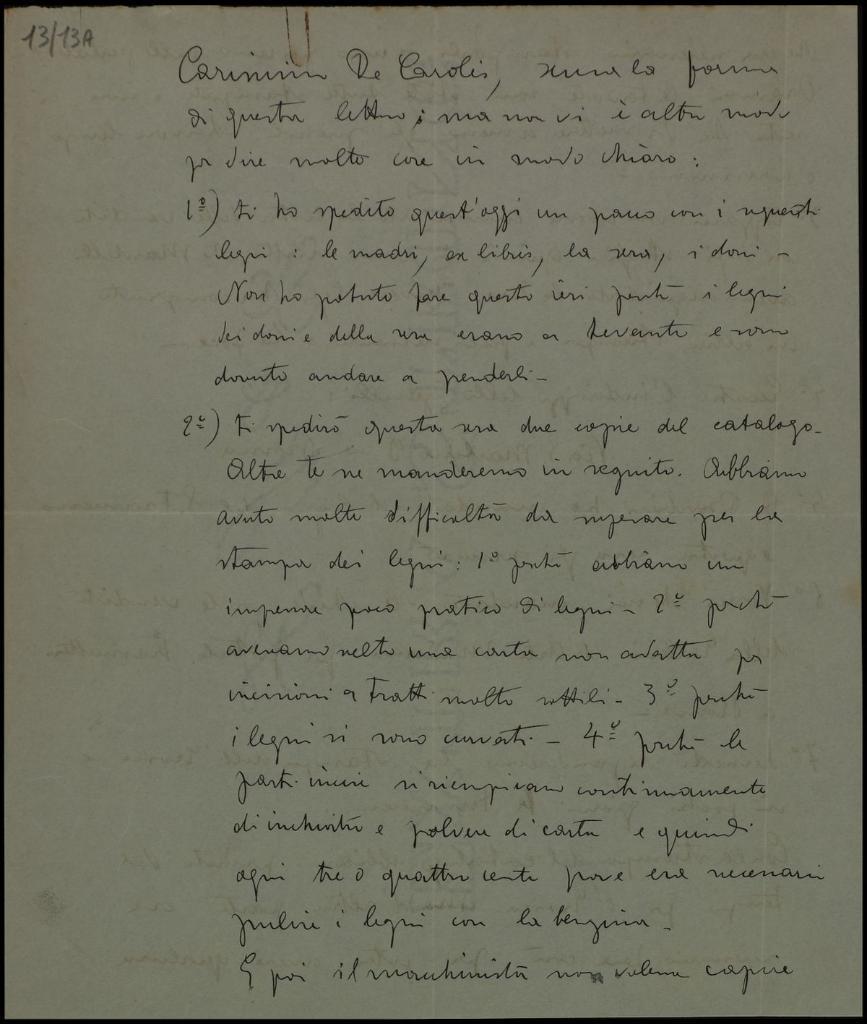 13/13A
Carissimo De Carolis, scusa la forma
di questa lettera; ma non vi è altro modo
per dire molte cose in modo chiaro:
1º) ti ho spedito quest'oggi un pacco con i seguenti
legni: le madri, ex libris, la sera, i doni –
Non ho potuto fare questo ieri perchè i legni
dei doni e della sera erano a Levante e sono
dovuto andare a prenderli –
2º) ti spedirò questa sera due copie del catalogo –
Altre te ne manderemo in seguito. Abbiamo
avuto molte difficoltà da superare per la
stampa dei legni: 1º perchè abbiamo un
impressore poco pratico di legni – 2º perchè
avevamo scelto una carta non adatta per
incisioni a tratti molto sottili – 3º perchè
i legni si sono curvati – 4º perchè le
parti incise si riempivano continuamente
di inchiostro e polvere di carta e quindi
ogni tre o quattro cento prove era necessario
pulire i legni con la benzina –
E poi il macchinista non voleva capire